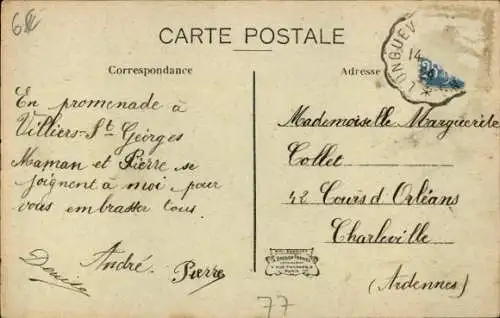 6
CARTE POSTALE
Correspondance
Adresse
LONGUEV
14
En promenade à
Villiers-St Georges
Maman et Pierre se
joignent à moi pour
vous embrasser tous.
Denise
André.
Pierre
Mademoiselle Marguerite
Collet
42 Cours d'Orléans
Charleville
(Ardennes)
77